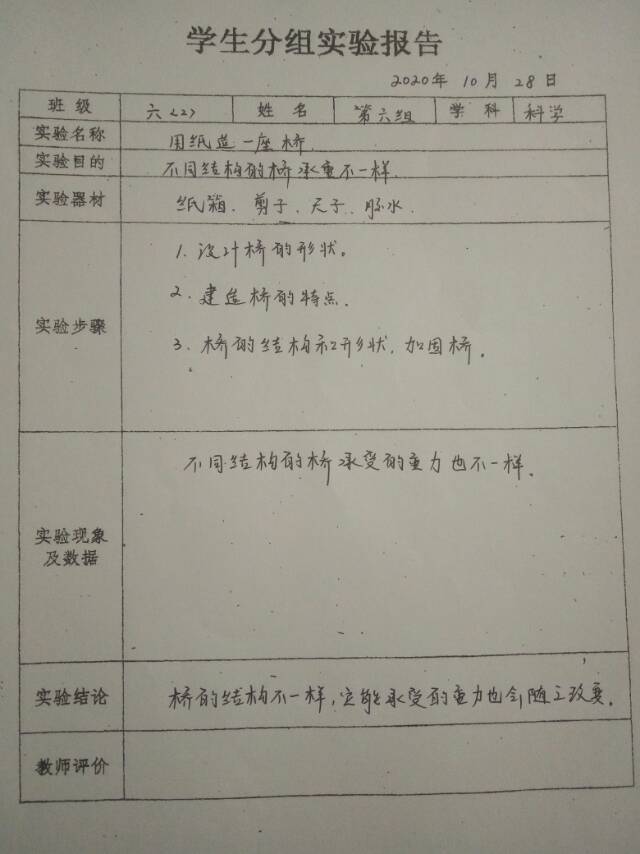 学生分组实验报告
2020年 10月 28日
班级 六（2） 姓名 第六组 学科 科学
实验名称 用纸造一座桥
实验目的 不同结构的桥承重不一样.
实验器材 纸箱、剪子、尺子、胶水.
1. 设计桥的形状。
2. 建造桥的特点.
实验步骤
3. 桥的结构和形状, 加固桥。
不同结构的桥承受的重力也不一样.
实验现象
及数据
实验结论 桥的结构不一样,它能承受的重力也会随之改变.
教师评价